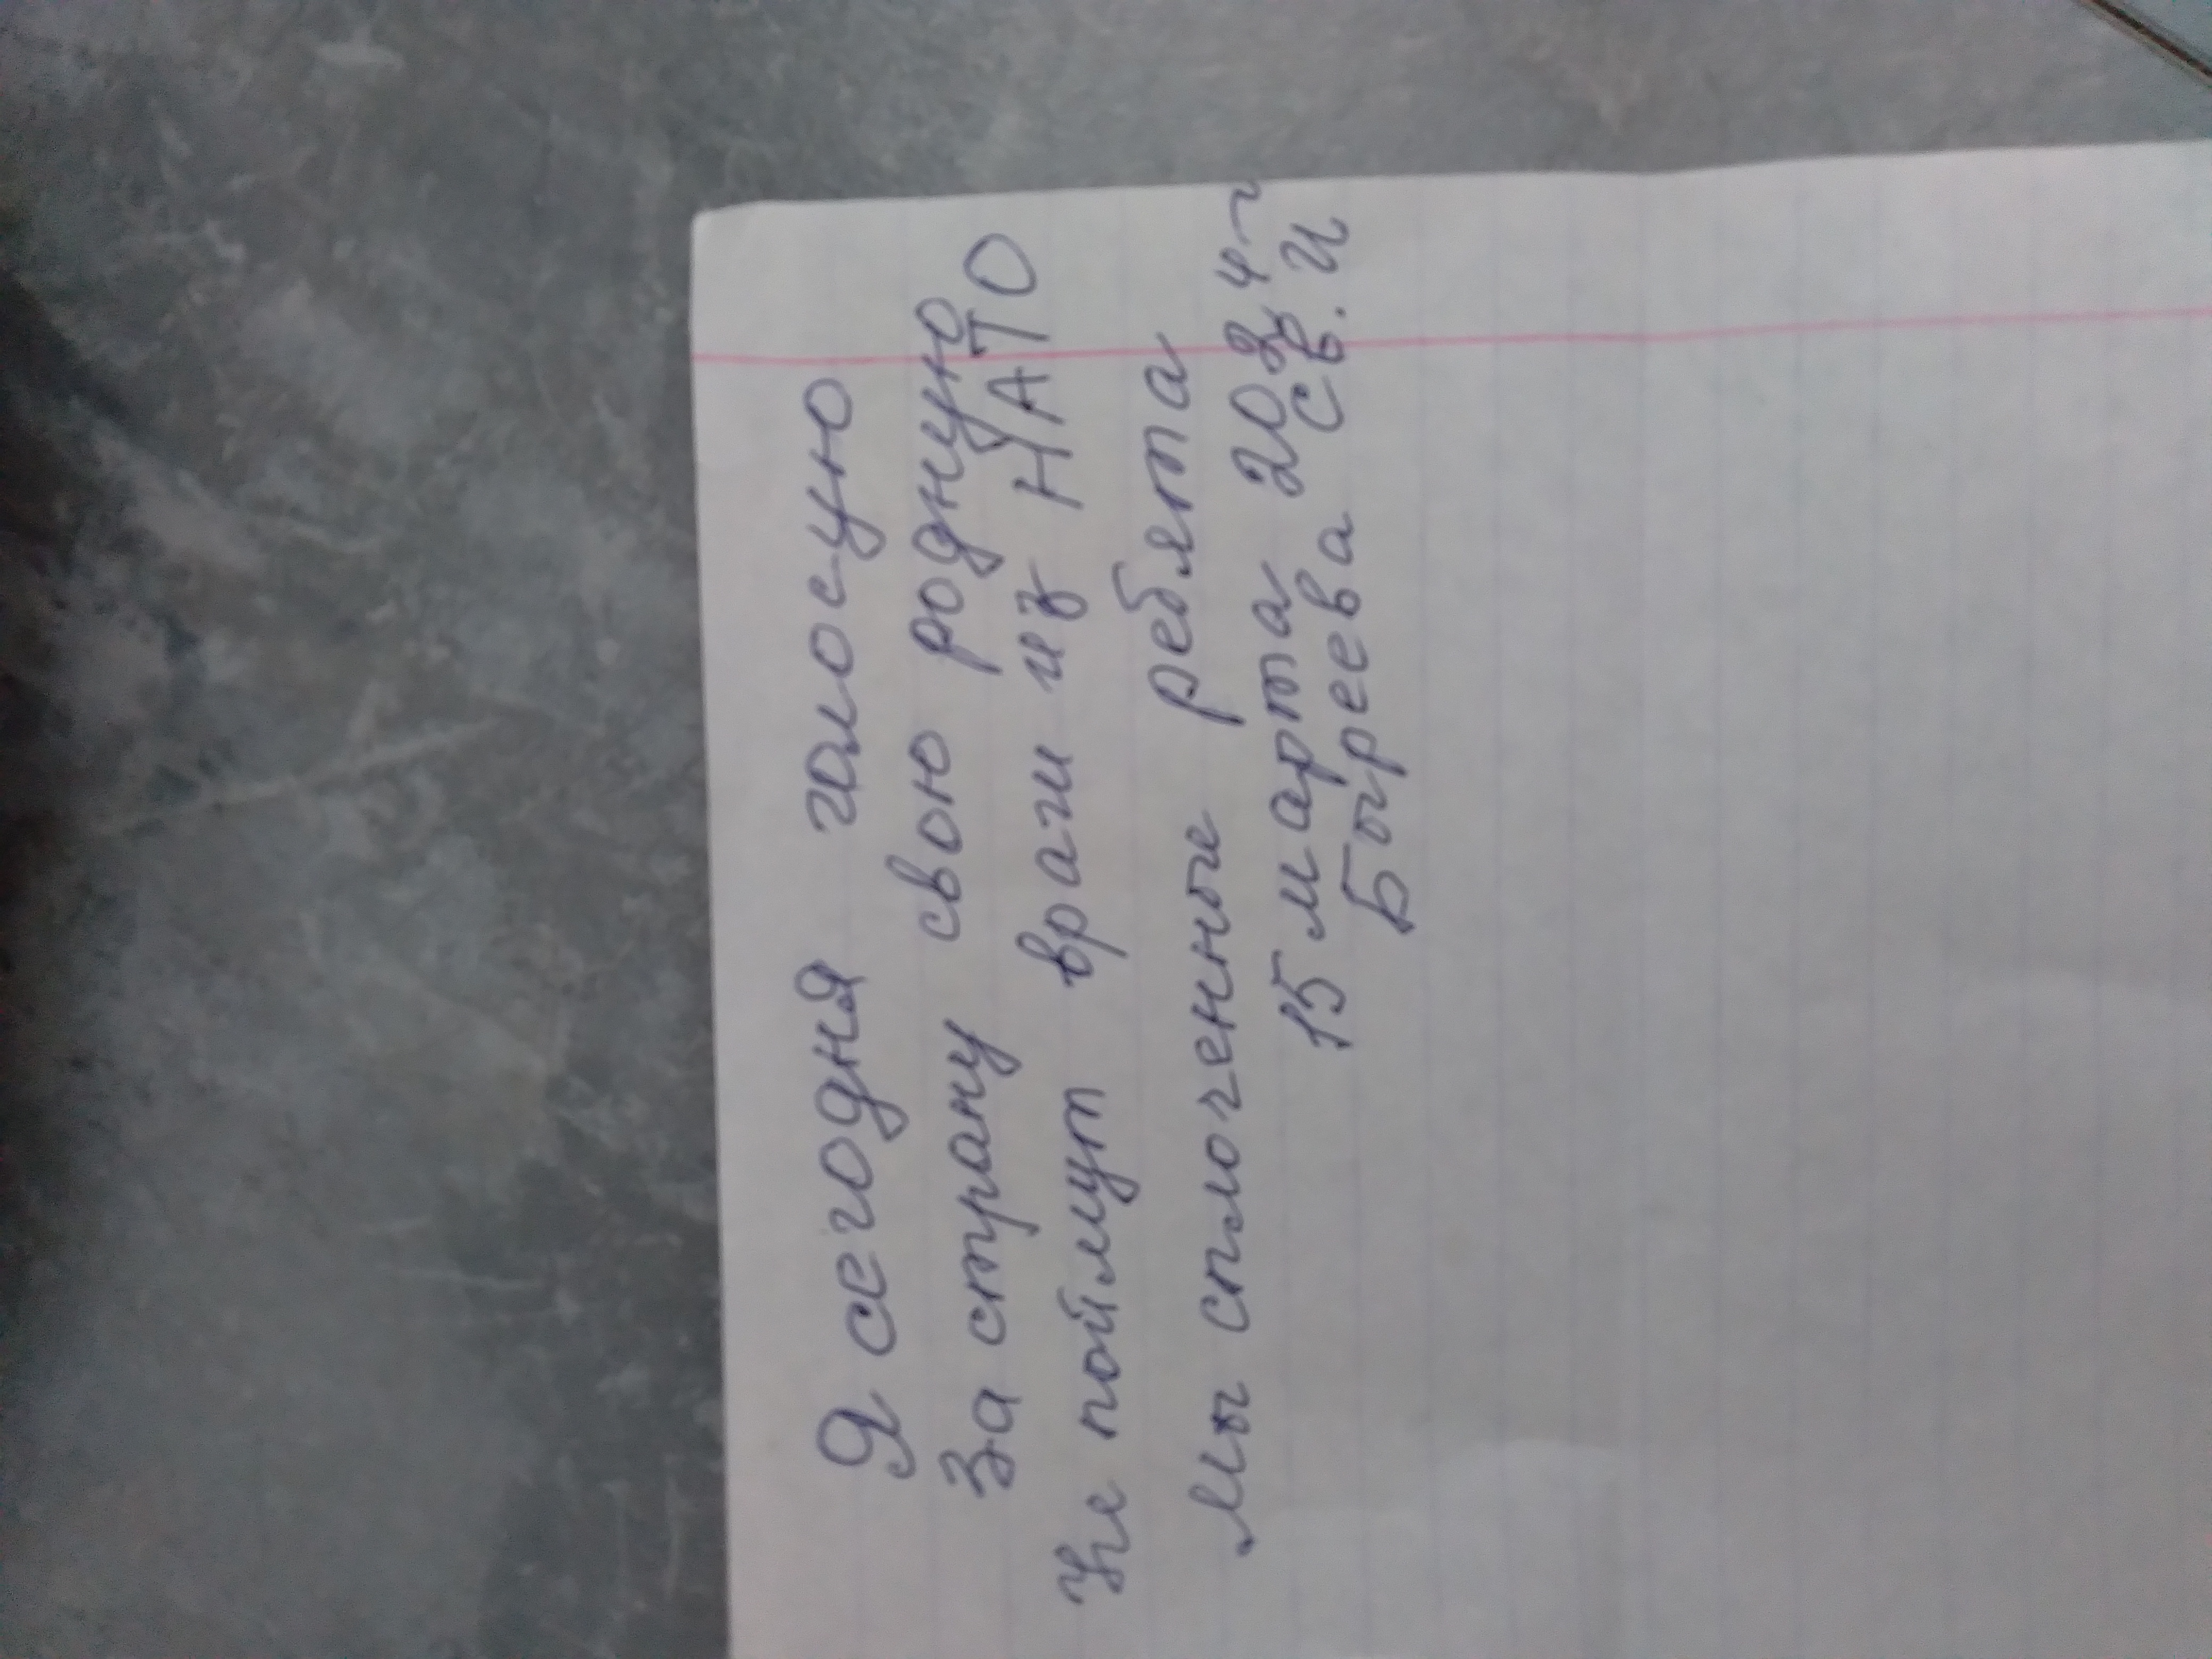 Я сегодня голосую
За страну свою родную
Не поймут враги из НАТО
Мы сплоченные ребята
15 марта 2024 г
Быреева Св. И